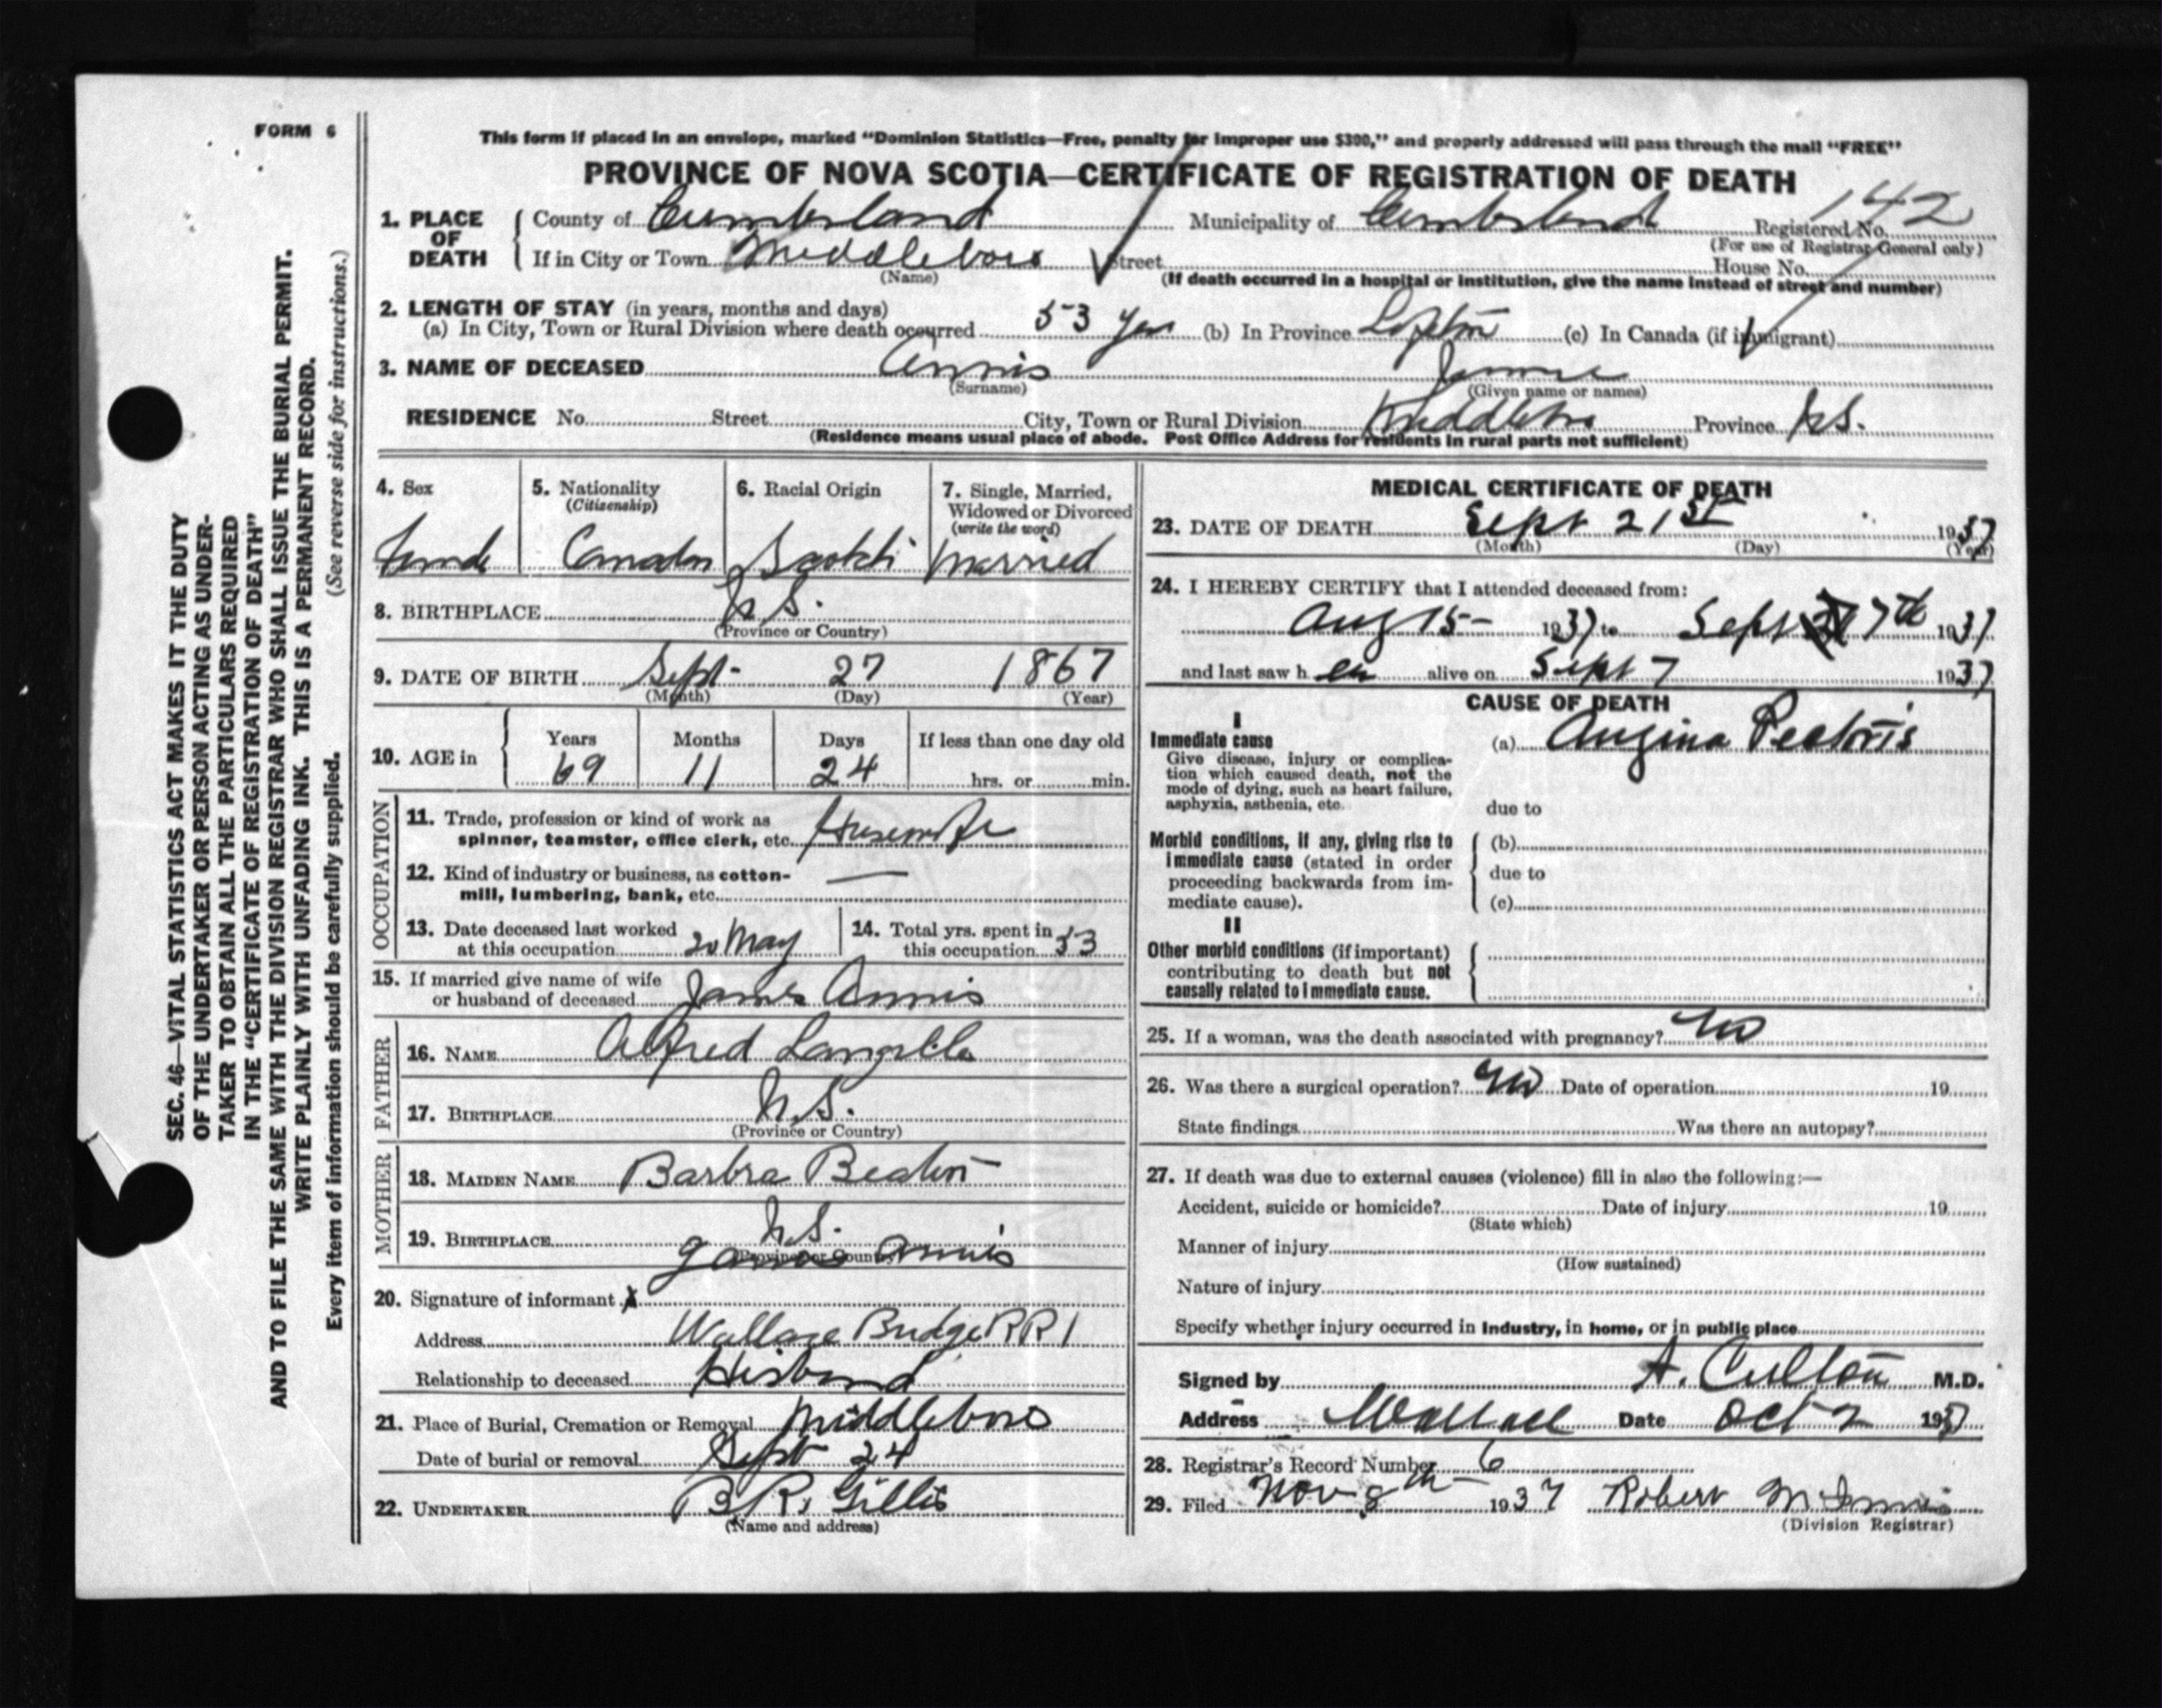 FORM 6
This form if placed in an envelope, marked "Dominion Statistics—Free, penalty for improper use $300," and properly addressed will pass through the mail "FREE"
PROVINCE OF NOVA SCOTIA—CERTIFICATE OF REGISTRATION OF DEATH
SEC. 46—VITAL STATISTICS ACT MAKES IT THE DUTY
OF THE UNDERTAKER OR PERSON ACTING AS UNDER-
TAKER TO OBTAIN ALL THE PARTICULARS REQUIRED
IN THE "CERTIFICATE OF REGISTRATION OF DEATH"
AND TO FILE THE SAME WITH THE DIVISION REGISTRAR WHO SHALL ISSUE THE BURIAL PERMIT.
WRITE PLAINLY WITH UNFADING INK. THIS IS A PERMANENT RECORD.
Every item of information should be carefully supplied. (See reverse side for instructions.)
1. PLACE OF DEATH
County of Cumberland Municipality of Cumberland Registered No. 142
(For use of Registrar General only)
If in City or Town Middleboro Street House No.
(Name) (If death occurred in a hospital or institution, give the name instead of street and number)
2. LENGTH OF STAY (in years, months and days)
(a) In City, Town or Rural Division where death occurred 53 (b) In Province (c) In Canada (if immigrant)
3. NAME OF DECEASED Annis
(Surname) (Given name or names)
RESIDENCE No. Street City, Town or Rural Division Middleboro Province N.S.
(Residence means usual place of abode. Post Office Address for residents in rural parts not sufficient)
4. Sex 5. Nationality (Citizenship) 6. Racial Origin 7. Single, Married, Widowed or Divorced (write the word)
Female Canadian Scotch Married
8. BIRTHPLACE N.S.
(Province or Country)
9. DATE OF BIRTH Sept 27 1867
(Month) (Day) (Year)
10. AGE in Years Months Days If less than one day old
69 11 24 hrs. or min.
OCCUPATION
11. Trade, profession or kind of work as
spinner, teamster, office clerk, etc. Housewife
12. Kind of industry or business, as cotton-
mill, lumbering, bank, etc. —
13. Date deceased last worked
at this occupation 20 May
14. Total yrs. spent in
this occupation 53
15. If married give name of wife
or husband of deceased James Annis
FATHER
16. NAME Alfred Langille
17. BIRTHPLACE N.S.
(Province or Country)
MOTHER
18. MAIDEN NAME Barbra Beaton
19. BIRTHPLACE N.S.
(Province or Country)
James Annis
20. Signature of informant X
Address Wallace Bridge RR 1
Relationship to deceased Husband
21. Place of Burial, Cremation or Removal Middleboro
Date of burial or removal Sept 24
22. UNDERTAKER B R. Gillis
(Name and address)
MEDICAL CERTIFICATE OF DEATH
23. DATE OF DEATH Sept 21st 1937
(Month) (Day) (Year)
24. I HEREBY CERTIFY that I attended deceased from:
Aug 15- 1937 to Sept 7th 1937
and last saw her alive on Sept 7 1937
CAUSE OF DEATH
I
Immediate cause (a) Angina Pectoris
Give disease, injury or complica-
tion which caused death, not the
mode of dying, such as heart failure,
asphyxia, asthenia, etc. due to
Morbid conditions, if any, giving rise to (b)
immediate cause (stated in order
proceeding backwards from im- due to
mediate cause). (c)
II
Other morbid conditions (if important)
contributing to death but not
causally related to immediate cause.
25. If a woman, was the death associated with pregnancy? No
26. Was there a surgical operation? No Date of operation 19
State findings Was there an autopsy?
27. If death was due to external causes (violence) fill in also the following:—
Accident, suicide or homicide? Date of injury 19
(State which)
Manner of injury
(How sustained)
Nature of injury
Specify whether injury occurred in industry, in home, or in public place
Signed by A. Culton M.D.
Address Wallace Date Oct 2 1937
28. Registrar's Record Number 6
29. Filed Nov 8th 1937 Robert
(Division Registrar)